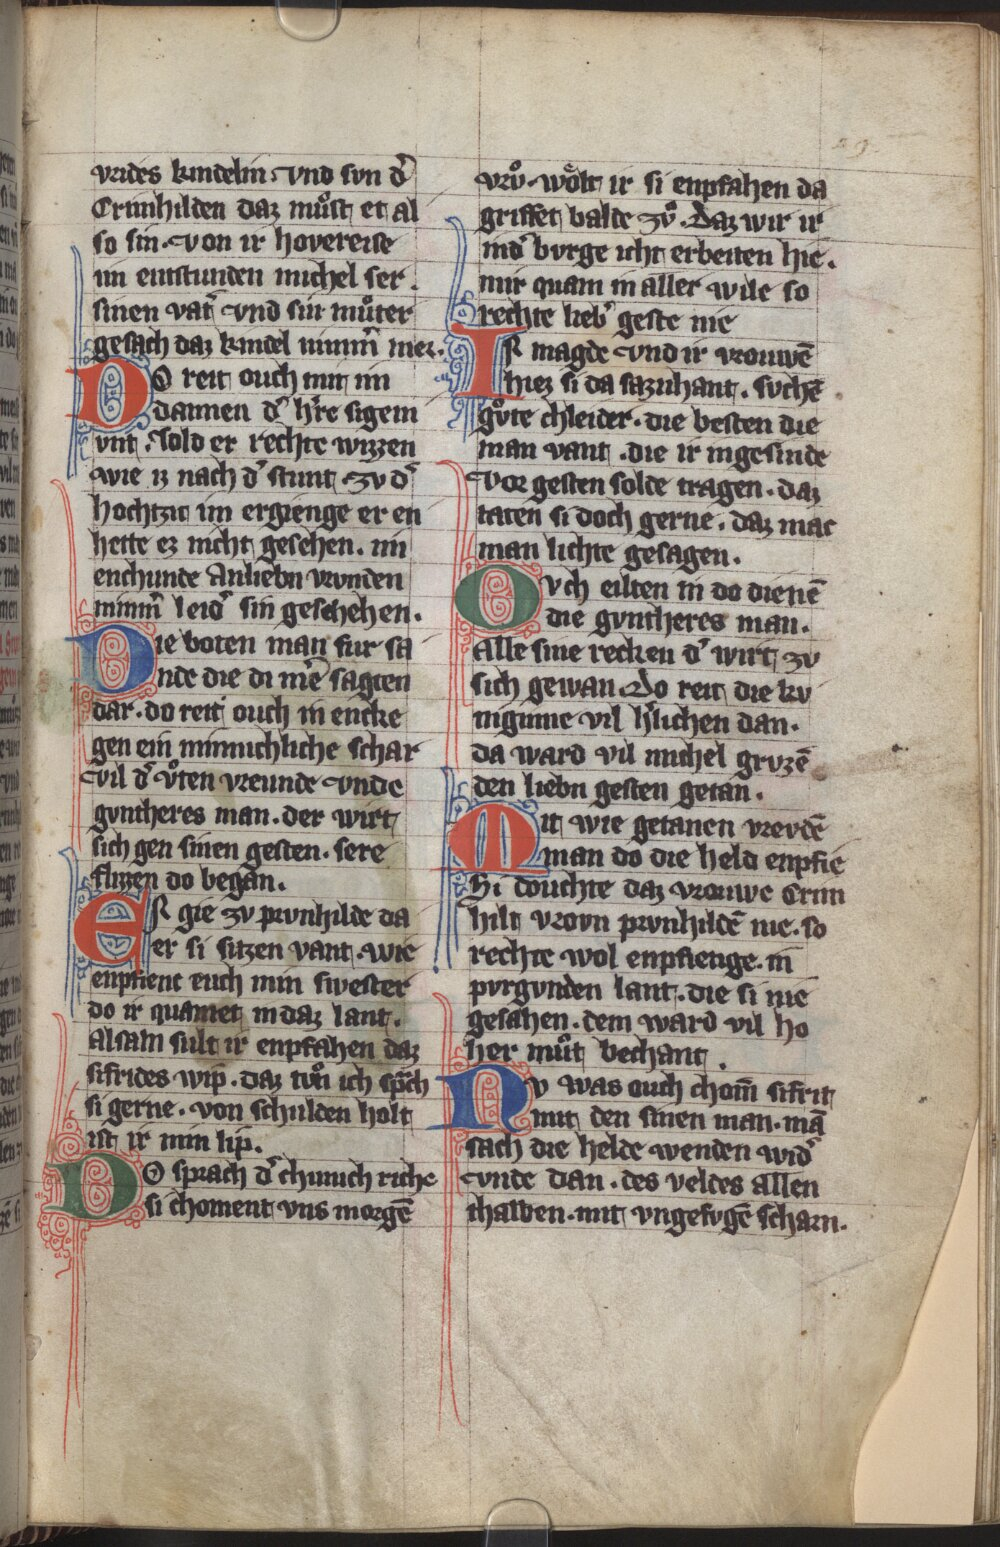 vrides kindelin vnd svn d᷑
Crimhilden daz mu᷒st et al
so sin. von ir hovereise
im enstunden michel ser.
sinen vat᷑ vnd sin mu᷒ter
gesach daz kindel nimm᷑ mer.
DO reit ouch mit im
dannen d᷑ h᷑re sigem
vnt. sold er rechte wizzen
wie iz nach d᷑ stunt zv d᷑
hochtzit im ergienge er en
hette ez nicht gesehen. im
enchunde Anliebn vrvnden
nimm᷑ leid᷑ sin geschehen.
Die boten man fur sa
nde die di me᷑ sagten
dar. do reit ouch in encke
gen ein minnichliche schar
vil d᷑ vͦten vreunde vnde
gvntheres man. der wirt
sich gen sinen gesten. sere
flizzen do began.
ER gie zv prvnhilde da
er si sitzen vant. wie
enpfient euch min swester
do ir quamet in daz lant.
alsam sult ir enpfahen daz
sifrides wip. daz tvͦn ich sp᷑ch
si gerne. von schulden holt
ist ir min lip.
DO sprach d᷑ chunich riche
si choment vns morgē
vrvͦ. woͤlt ir si enpfahen da
griffet balde zvͦ. Daz wir ir
ind᷑ bvrge icht erbeiten hie.
mir quam in aller wile so
rechte lieb᷑ geste nie
IR magde vnd ir vrouwē
hiez si da sazuhant. svchē
gvͦte chleider. die besten die
man vant. die ir ingesinde
vor gesten solde tragen. daz
taten si doch gerne. daz mac
man lichte gesagen.
Ovch eilten in do dienē
die gvntheres man.
Alle sine recken d᷑ wirt zv
sich gewan. Do reit die kv
niginne vil h᷑lichen dan.
da ward vil michel grvzē
den liebn gesten getan.
Mit wie getanen vrevdē
man do die held enpfie
Si douchte daz vrouwe Crim
hilt vrovn prvnhildē nie. so
rechte wol enpfienge. in
pvrgvnden lant. die si nie
gesahen. dem ward vil ho
her muͦt bechant.
Nv was ouch chom̄ sifrit
mit den sinen man. mā
sach die helde wenden wid᷑
vnde dan. des veldes allen
thalben. mit vngefvgē scharn.